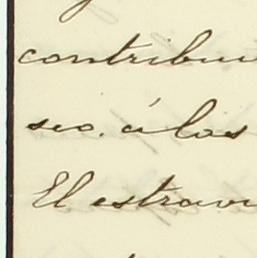 contribu
seo. á los
El estrav